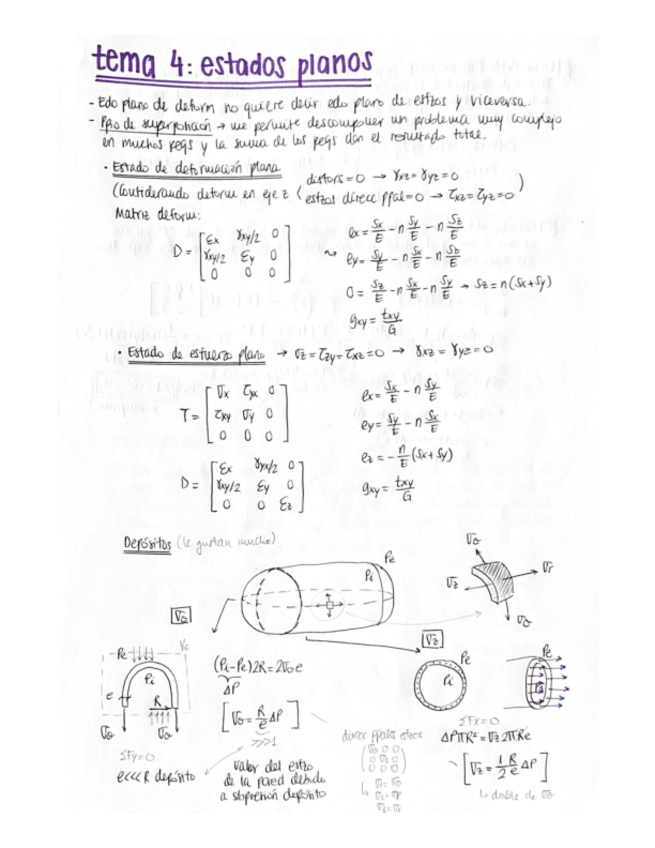 tema 4: estados planos
- Edo plano de deform no quiere decir edo plano de esfzos y viceversa.
- Ppio de superposición → me permite descomponer un problema muy complejo
en muchos peqs y la suma de los peqs dan el resultado total.
· Estado de deformación plana
(Considerando deform en eje z
distors=0 → γxz=γyz=0
esfzos direcc ppal=0 → τxz=τyz=0)
Matriz deform:
D = [εx γxy/2 0
γxy/2 εy 0
0 0 0]
ex = Sx/E - n Sy/E - n Sz/E
ey = Sy/E - n Sx/E - n Sz/E
0 = Sz/E - n Sx/E - n Sy/E → Sz = n(Sx+Sy)
gxy = txy/G
· Estado de esfuerzo plano → σz=τzy=τxz=0 → γxz=γyz=0
T = [σx τyx 0
τxy σy 0
0 0 0]
ex = Sx/E - n Sy/E
ey = Sy/E - n Sx/E
ez = - n/E (Sx+Sy)
gxy = txy/G
D = [εx γyx/2 0
γxy/2 εy 0
0 0 εz]
Depósitos (le gustan mucho)
Pe
Pi
σθ
σr
σz
σθ
σθ
σz
Pe
Pi
e
R
σθ σθ
ΣFy=0
e<<<R depósito
(Pi-Pe)2R=2σθe
ΔP
[σθ = R/e ΔP]
>>>1
valor del esfzo
de la pared debido
a sbpresión depósito
direcc ppales esfzos
Pe
Pi
Pe
Pi
ΣFx=0
ΔPπR²=σz2πRe
[σz = 1/2 R/e ΔP]
↳ doble de σθ